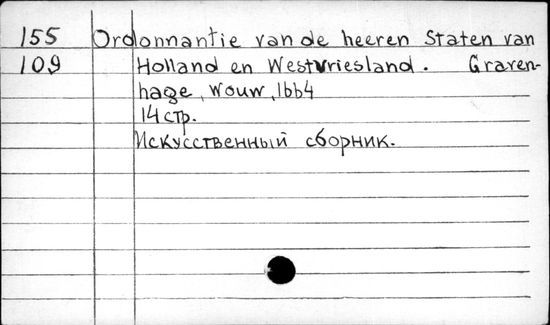 155 Ordonnantie van de heeren Staten van
109 Holland en Westvriesland. Graven-
hage, Wouw, 1664
14 стр.
Искусственный сборник.